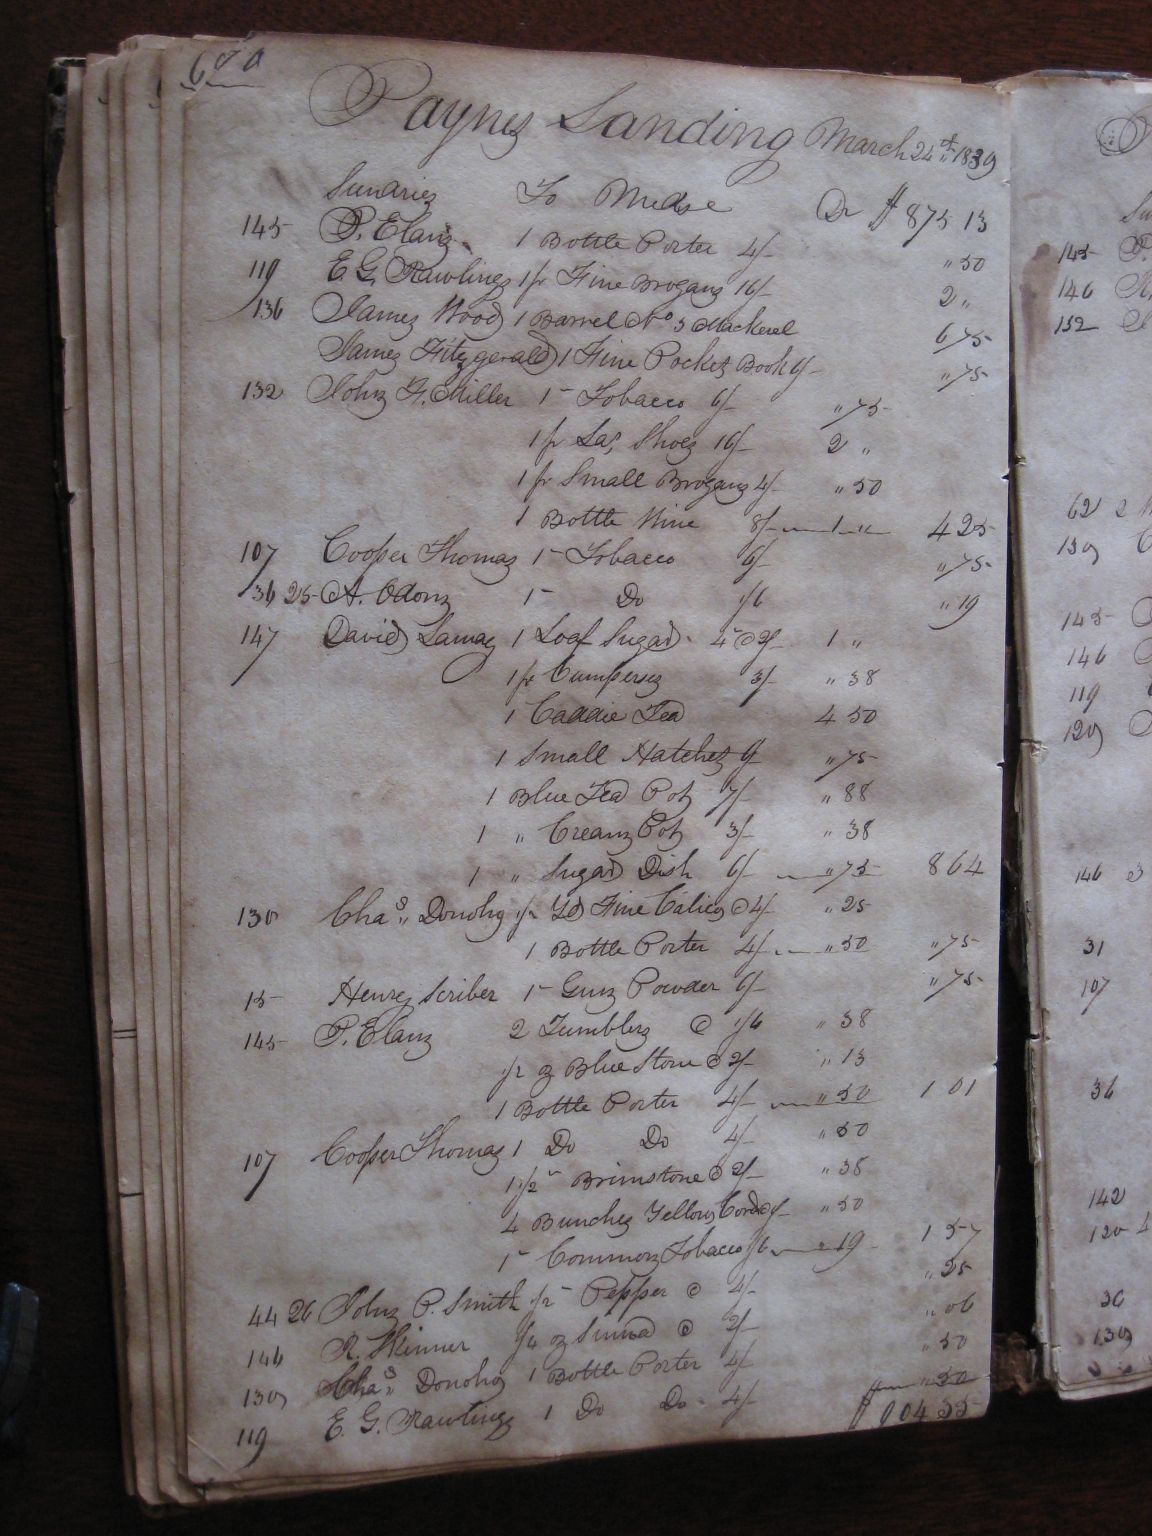 Paynes Landing March 24th 1839
Sundries To Mdse Dr $ 875 13
145 P. Elanz 1 Bottle Porter 4/- " 50
119 E G. Rawlings 1 pr Fine Brogans 16/- 2 "
136 James Wood 1 Barrel No 3 Mackerel 6 75
James Fitzgerald 1 Fine Pocket Book 6/- " 75
132 John G. Miller 1 Tobacco 6/- " 75
1 pr Las, Shoes 16/- 2 "
1 pr Small Brogans 4/- " 50
1 Bottle Wine 8/- 1 " 4 25
107 Cooper Thomas 1 Tobacco 6/- " 75
36 25 A. Odonz 1 Do 1/6 " 19
147 David Lamag 1 Loaf Sugar 4 @ 2/- 1 "
1 pr 3/- " 38
1 Caddie Tea 4 50
1 Small Hatchet 6/- " 75
1 Blue Tea Pot 7/- " 88
1 " Cream Pot 3/- " 38
1 " Sugar Dish 6/- " 75 8 64
130 Chas Donoho 1/2 Yd Fine Calico @ 4/- " 25
1 Bottle Porter 4/- " 50 " 75
15 Henry Scriber 1 Gun Powder 6/- " 75
145 P. Elanz 2 Tumblers @ 1/6 " 38
1/2 oz Blue Stone @ 2/- " 13
1 Bottle Porter 4/- " 50 1 01
107 Cooper Thomas 1 Do Do 4/- " 50
1 1/2 Brimstone @ 2/- " 38
4 Bunches Yellow Cord " 50
1 Common Tobacco 1/6 " 19 1 57
44 26 John P. Smith 1/2 Pepper @ 4/- " 25
146 R. Skinner 1/4 oz @ 2/- " 06
130 Chas Donoho 1 Bottle Porter 4/- " 50
119 E. G. Rawlings 1 Do Do 4/- " 50
$ 904 55
145 P.
146
132
62 2
130
145
146
119
120
146 3
31
107
36
142
120
36
130